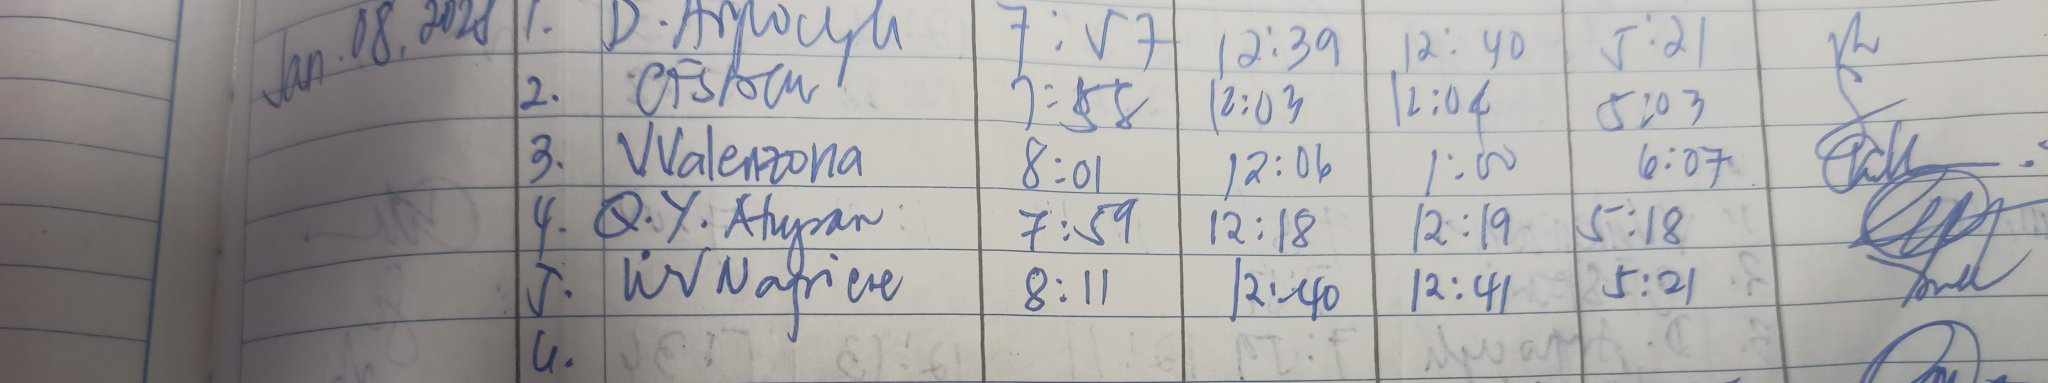 Jan. 08, 2025 1. D. 7:57 12:39 12:40 5:21
2. 7:58 12:03 12:04 5:03
3. VValenzona 8:01 12:06 1:00 6:07
4. Q.Y. Atupan 7:59 12:18 12:19 5:18
5. 8:11 12:40 12:41 5:21
6.